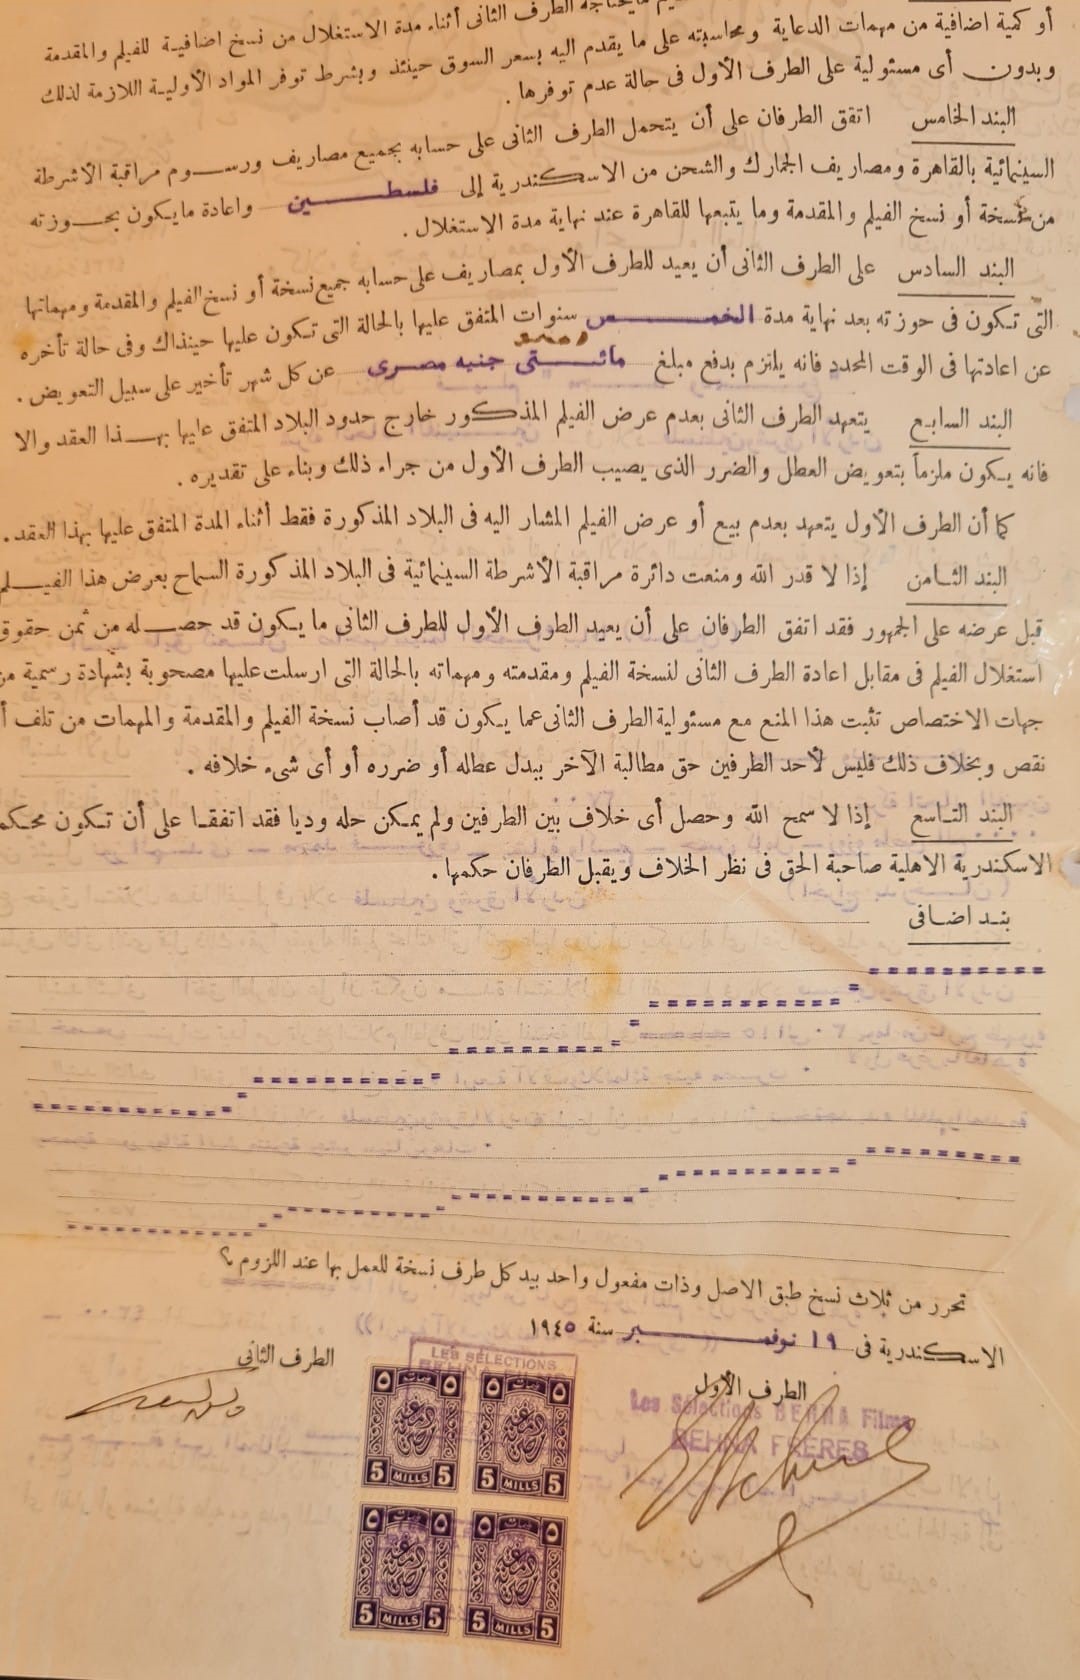 الطرف الثانى أثناء مدة الاستغلال من نسخ اضافية للفيلم والمقدمة
أو كمية اضافية من مهمات الدعاية ومحاسبته على ما يقدم اليه بسعر السوق حينئذ وبشرط توفر المواد الأولية اللازمة لذلك
وبدون أى مسئولية على الطرف الأول فى حالة عدم توفرها .
البند الخامس اتفق الطرفان على أن يتحمل الطرف الثانى على حسابه بجميع مصاريف ورسوم مراقبة الأشرطة
السينمائية بالقاهرة ومصاريف الجمارك والشحن من الاسكندرية إلى فلسطين واعادة ما يكون بحوزته
من نسخة أو نسخ الفيلم والمقدمة وما يتبعها للقاهرة عند نهاية مدة الاستغلال .
البند السادس على الطرف الثانى أن يعيد للطرف الأول بمصاريف على حسابه جميع نسخة أو نسخ الفيلم والمقدمة ومهماتها
التى تكون فى حوزته بعد نهاية مدة الخمس سنوات المتفق عليها بالحالة التى تكون عليها حينذاك وفى حالة تأخره
عن اعادتها فى الوقت المحدد فانه يلتزم بدفع مبلغ مائتى جنيه مصرى عن كل شهر تأخير على سبيل التعويض .
البند السابع يتعهد الطرف الثانى بعدم عرض الفيلم المذكور خارج حدود البلاد المتفق عليها بهذا العقد والا
فانه يكون ملزماً بتعويض العطل والضرر الذى يصيب الطرف الأول من جراء ذلك وبناء على تقديره .
كما أن الطرف الأول يتعهد بعدم بيع أو عرض الفيلم المشار اليه فى البلاد المذكورة فقط أثناء المدة المتفق عليها بهذا العقد .
البند الثامن إذا لا قدر الله ومنعت دائرة مراقبة الأشرطة السينمائية فى البلاد المذكورة السماح بعرض هذا الفيلم
قبل عرضه على الجمهور فقد اتفق الطرفان على أن يعيد الطرف الأول للطرف الثانى ما يكون قد حصله من ثمن حقوق
استغلال الفيلم فى مقابل اعادة الطرف الثانى لنسخة الفيلم ومقدمته ومهماته بالحالة التى ارسلت عليها مصحوبة بشهادة رسمية من
جهات الاختصاص تثبت هذا المنع مع مسئولية الطرف الثانى عما يكون قد أصاب نسخة الفيلم والمقدمة والمهمات من تلف أ
نقص وبخلاف ذلك فليس لأحد الطرفين حق مطالبة الآخر ببدل عطله أو ضرره أو أى شىء خلافه .
البند التاسع إذا لا سمح الله وحصل أى خلاف بين الطرفين ولم يمكن حله وديا فقد اتفقا على أن تكون محكم
الاسكندرية الاهلية صاحبة الحق فى نظر الخلاف ويقبل الطرفان حكمها .
بند اضافى
تحرر من ثلاث نسخ طبق الاصل وذات مفعول واحد بيد كل طرف نسخة للعمل بها عند اللزوم ؟
الاسكندرية فى ١٩ نوفمبر سنة ١٩٤٥
الطرف الأول
الطرف الثانى
Les Sélections BEHNA Films
BEHNA FRERES
LES SELECTIONS
BEHNA
٥ ٥
5 MILLS 5
٥ ٥
5 MILLS 5
٥ ٥
5 MILLS 5
٥ ٥
5 MILLS 5